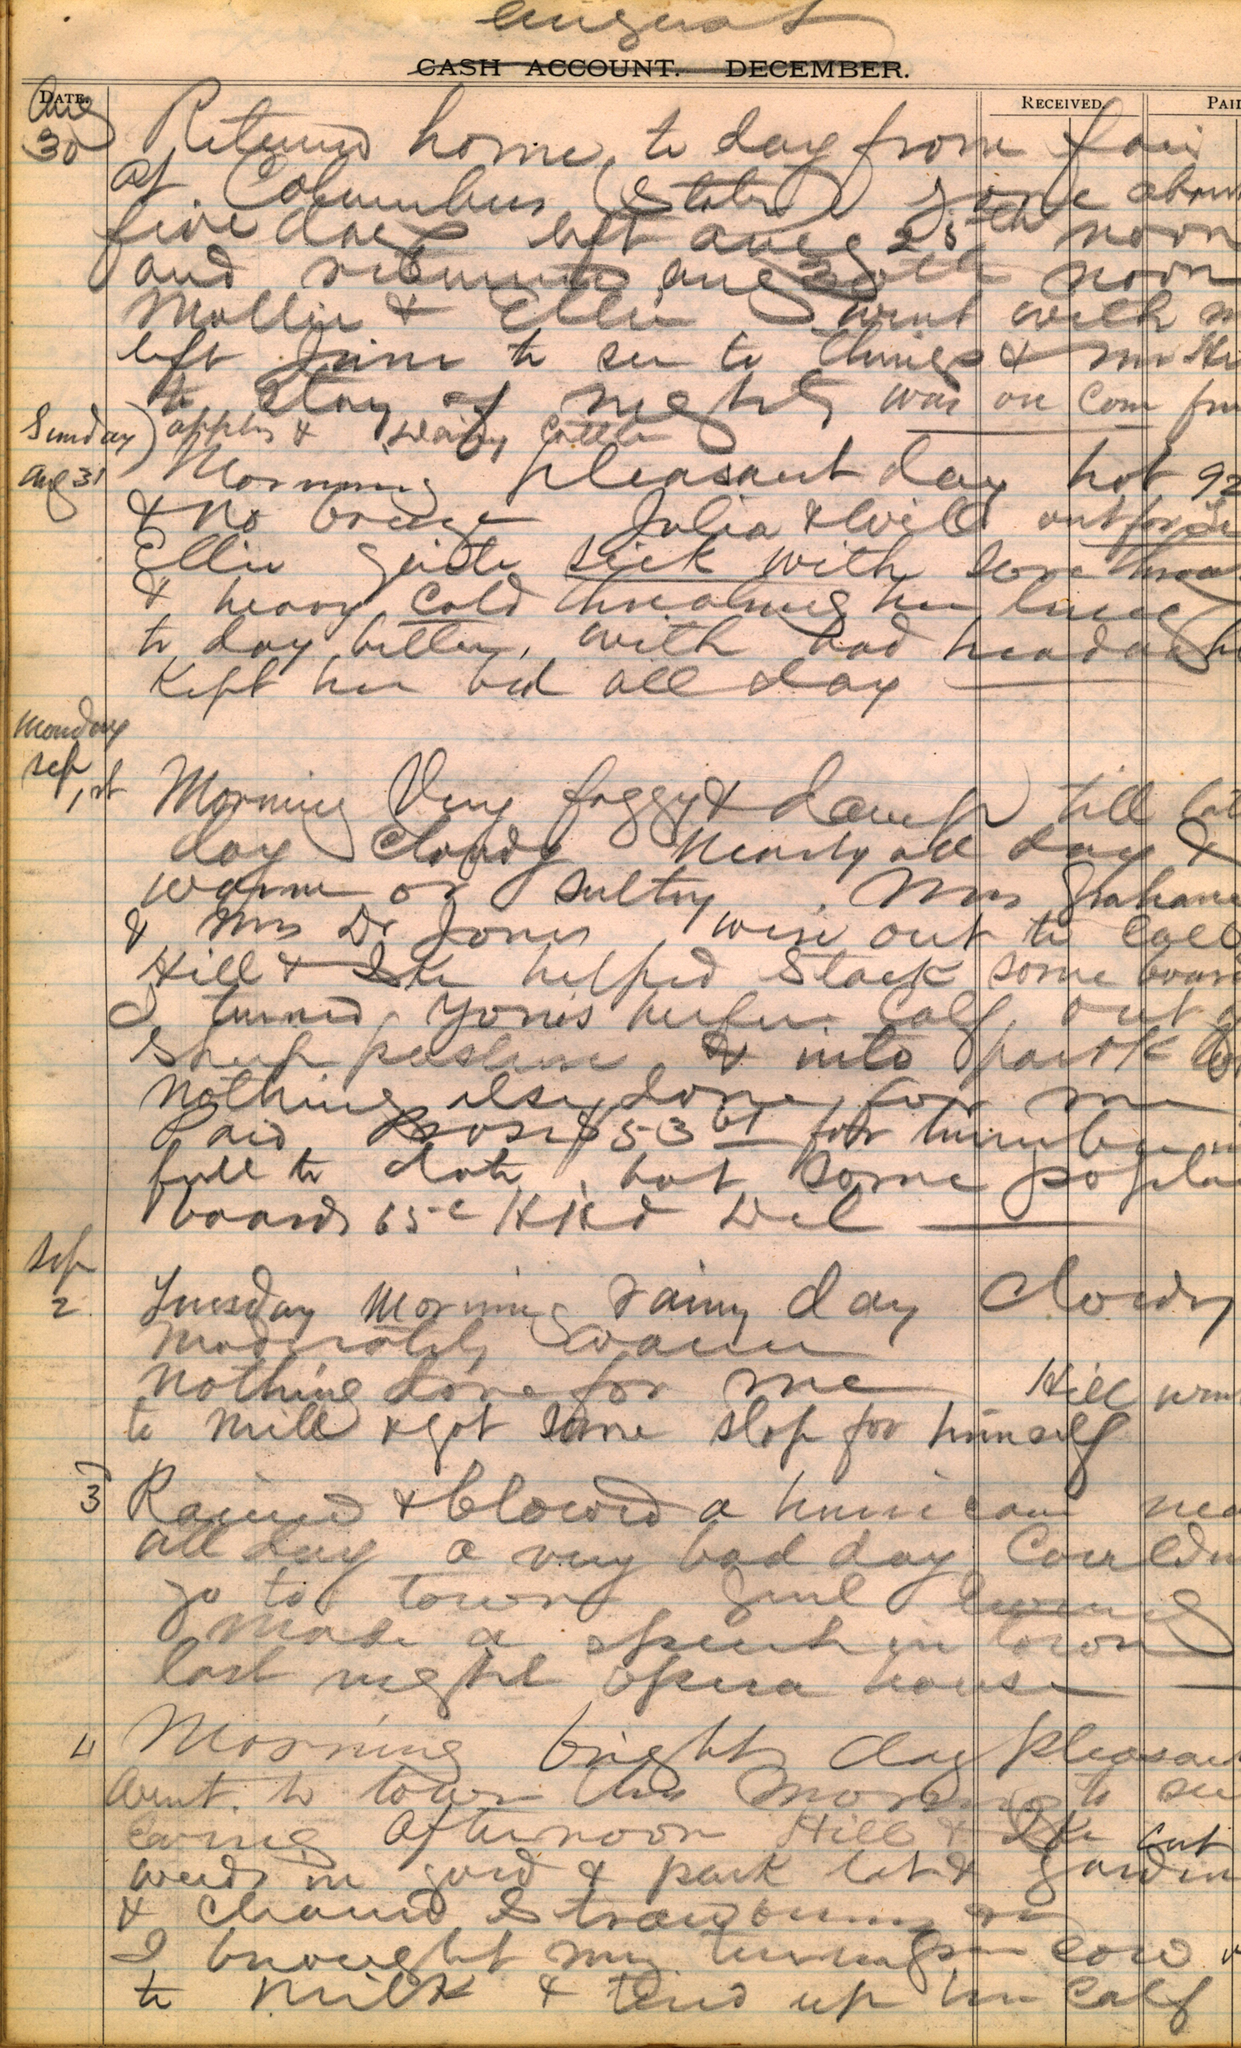 August
CASH ACCOUNT. DECEMBER.
DATE. RECEIVED. PAID
Aug 30 Returned home, to day from fair
at Columbus (State) gone about
five days left Aug 25th noon
and returned Aug 30th noon
Mollie & Ellie went with m
left Jim to see to things & Mr
to stay of nights was on Com fru
Sunday) apples & Dairy Cattle
Aug 31 Morning pleasant day hot 92
& no breeze Julia & Will out for
Ellie quite sick with sore throat
& heavy cold threatning her lungs
to day better, with bad headache
Kept her bed all day
Monday
Sep 1st Morning Very foggy & damp till late
day Cloudy Nearly all day &
warm or sultry. Mrs Graham
& Mrs Dr Jones were out to call
Hill & Ike helped stack some boards
I turned heifer calf out of
sheep pasture & into park
Nothing else done for me
Paid $53 for lumber in
full to date, but some poplar
boards 65c
Sep
2 Tuesday Morning rainy day Cloudy
Moderately warm
Nothing done for me Hill went
to mill & got some slop for himself
3 Rained & blowed a hurricane nea
all day a very bad day Couldn
go to town Genl Ewing
Made a speech in town
last night opera house
4 Morning bright day pleasant
Went to town this Morning to see
Ewing Afternoon Hill & Ike cut
weeds in yard & park lot & garden
& cleaned
I brought my cow
to milk & tied up her calf